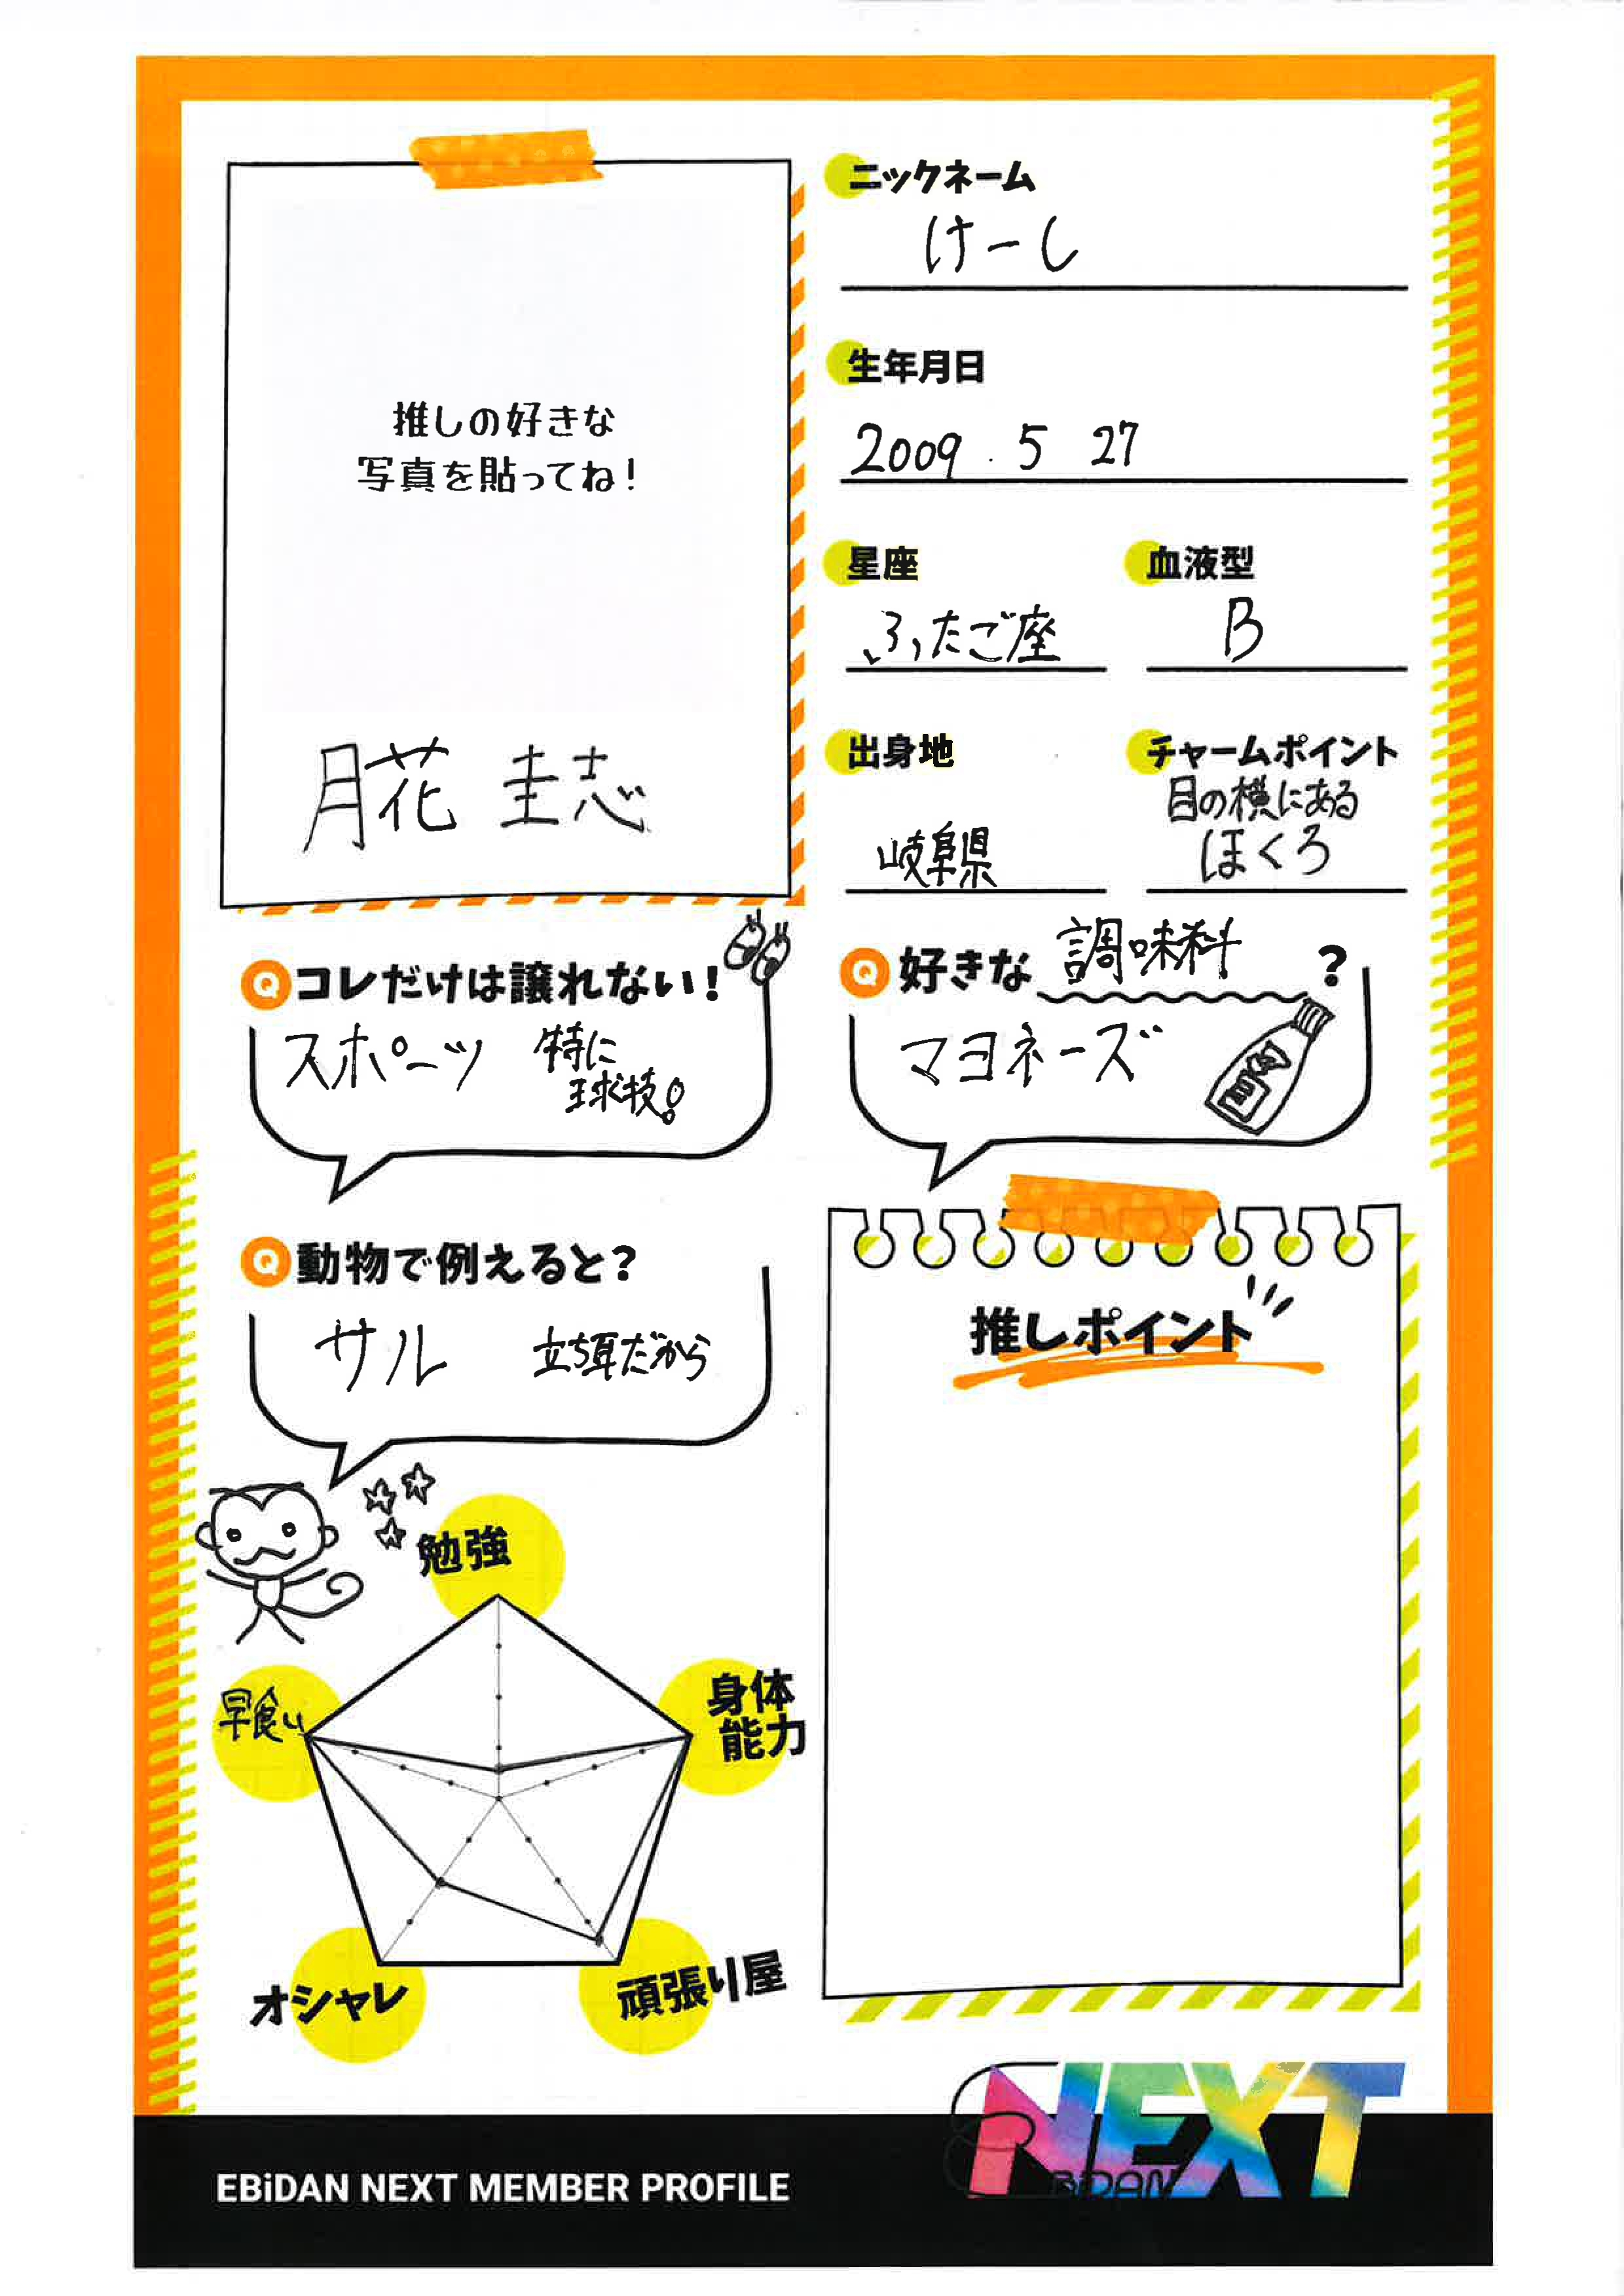 推しの好きな
写真を貼ってね!
月花 圭志
ニックネーム
けーし
生年月日
2009. 5 27
星座
ふたご座
血液型
B
出身地
岐阜県
チャームポイント
目の横にある
ほくろ
Q コレだけは譲れない!
スポーツ 特に
球技!
Q 好きな 調味料 ?
マヨネーズ
Q 動物で例えると?
サル 立ち耳だから
推しポイント
勉強
身体
能力
頑張り屋
オシャレ
早食い
EBiDAN NEXT MEMBER PROFILE
NEXT
EBiDAN